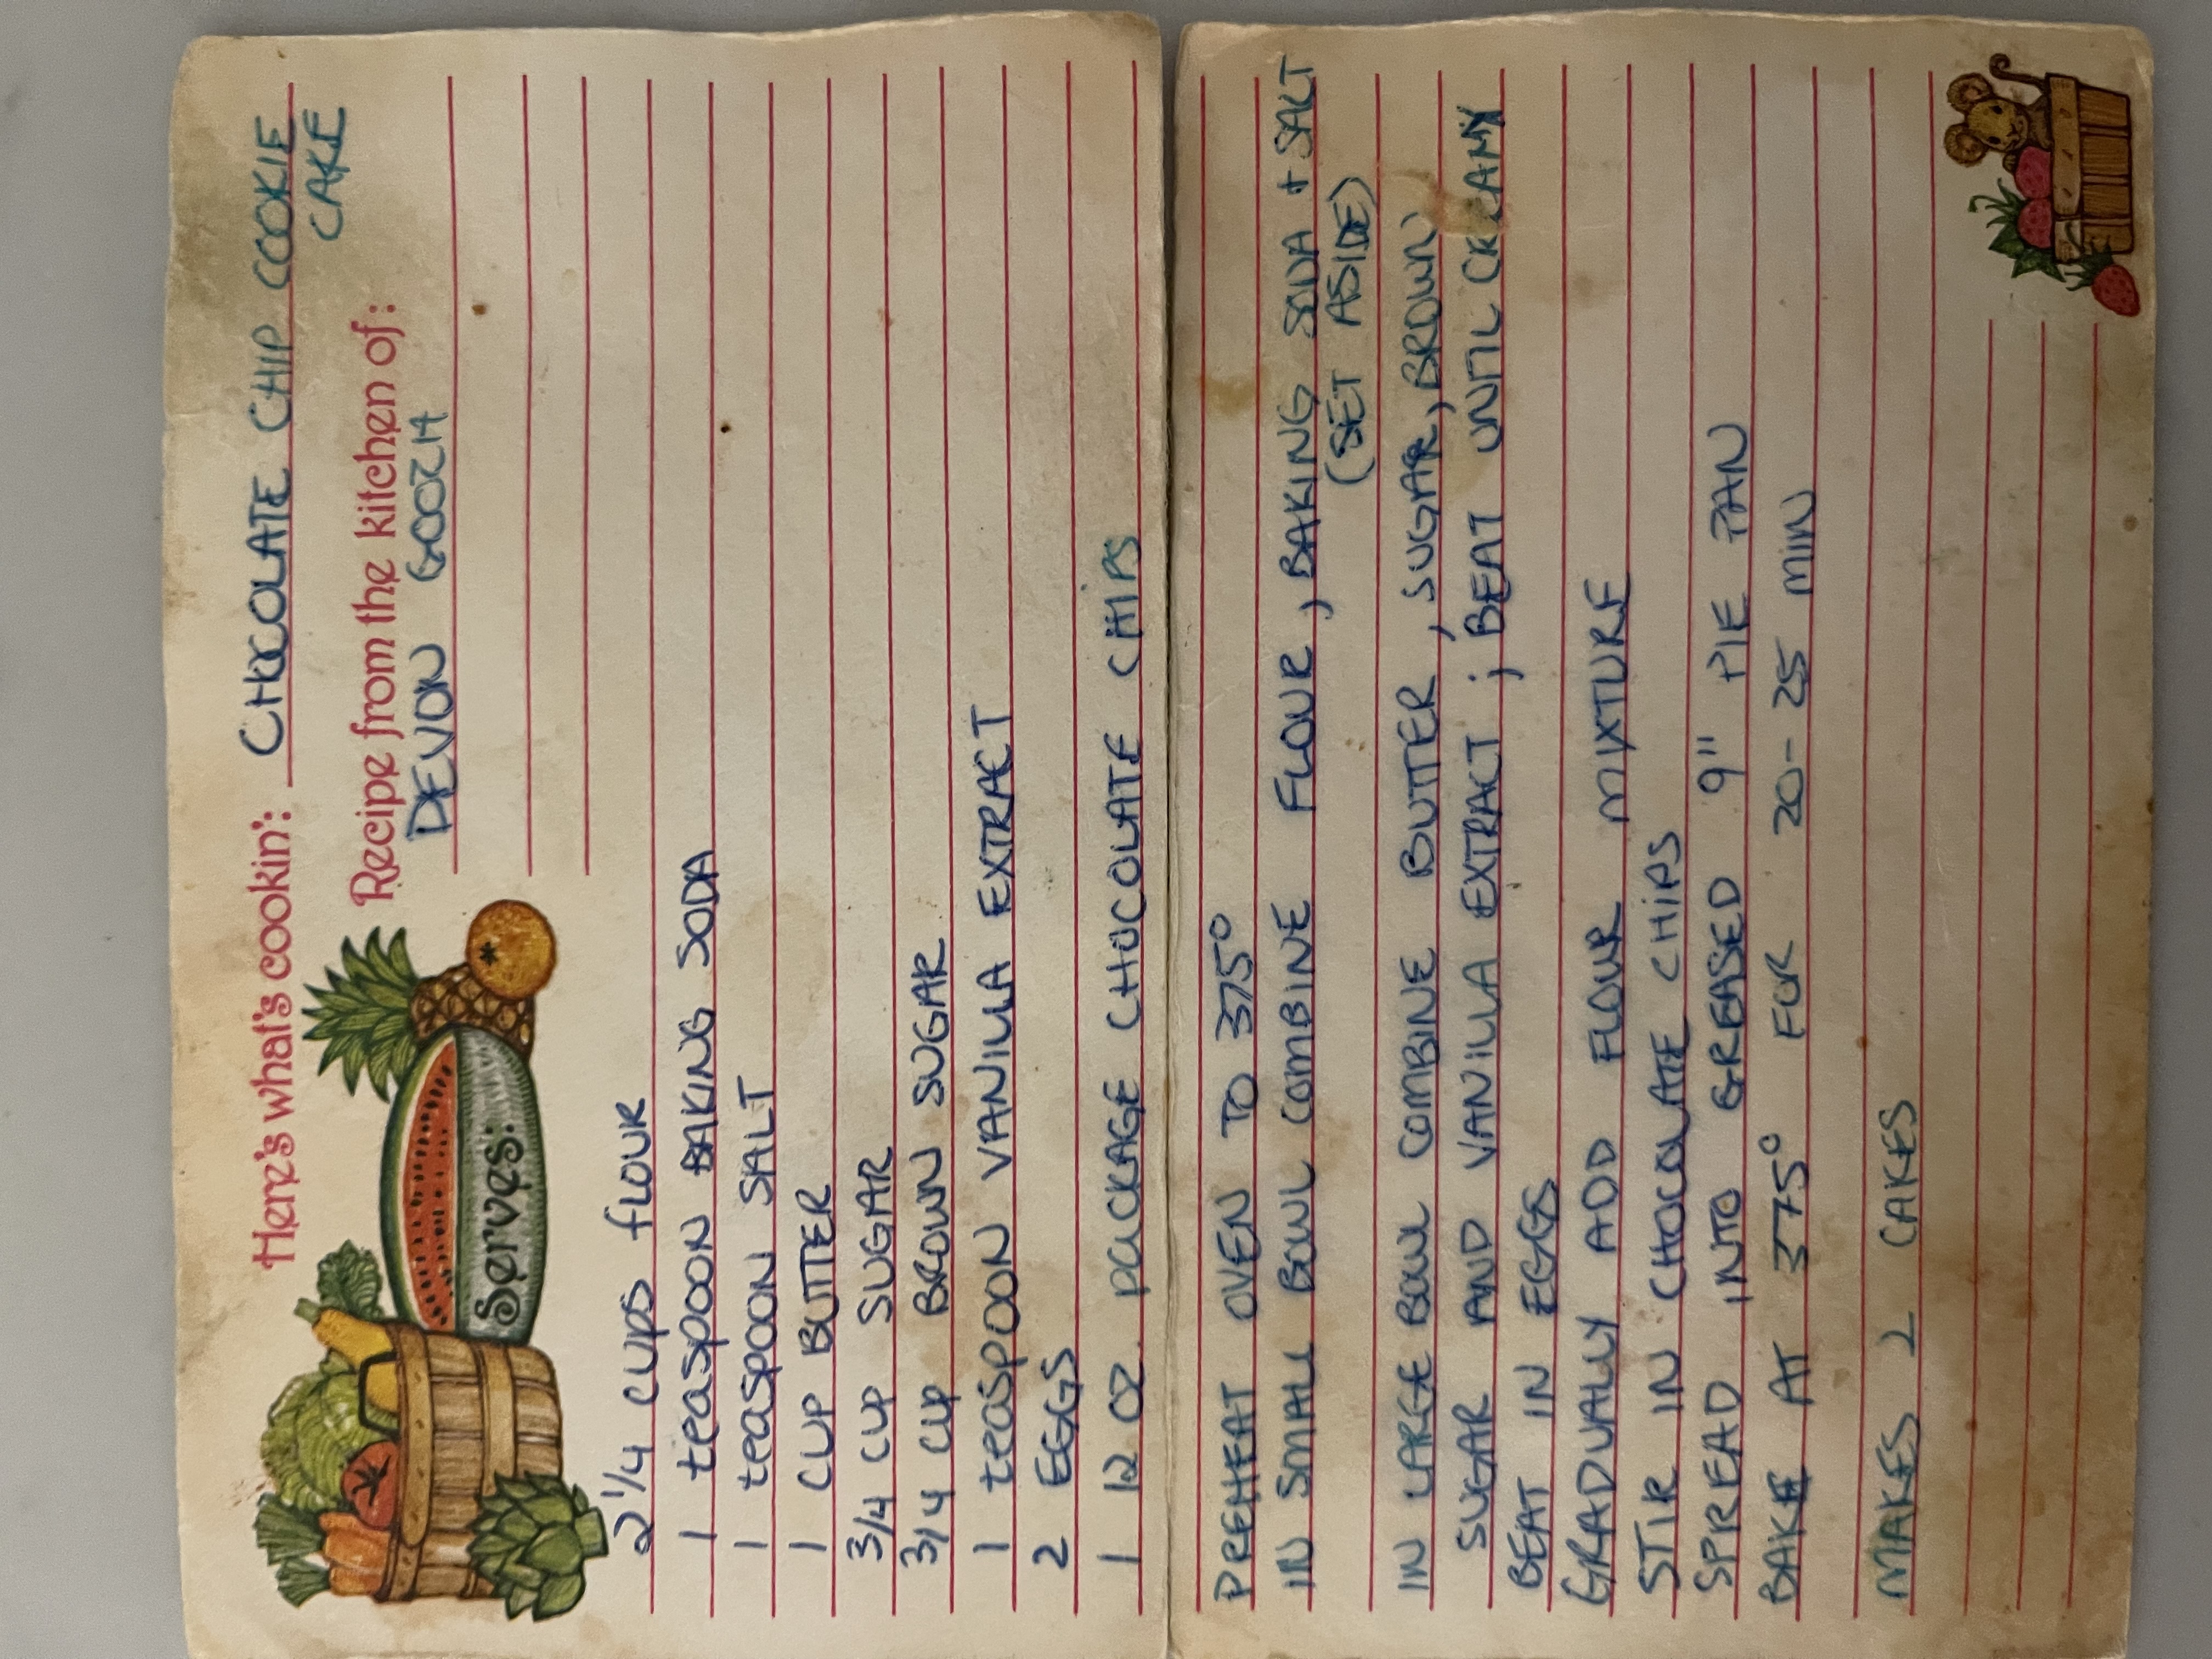 Here's what's cookin': CHOCOLATE CHIP COOKIE
CAKE
Recipe from the kitchen of:
DEVON GOOCH
Serves:
2 1/4 CUPS flOUR
1 teaspoon BAKING SODA
1 teaspoon SALT
1 CUP BUTTER
3/4 CUP SUGAR
3/4 CUP BROWN SUGAR
1 teaspoon VANILLA EXTRACT
2 EGGS
1 12 OZ. package CHOCOLATE CHIPS
PREHEAT OVEN TO 375°
IN SMALL BOWL COMBINE FLOUR, BAKING SODA + SALT
(SET ASIDE)
IN LARGE BOWL COMBINE BUTTER, SUGAR, BROWN
SUGAR AND VANILLA EXTRACT; BEAT UNTIL CREAMY
BEAT IN EGGS
GRADUALLY ADD FLOUR MIXTURE
STIR IN CHOCOLATE CHIPS
SPREAD INTO GREASED 9" PIE PAN
BAKE AT 375° FOR 20-25 MIN
MAKES 2 CAKES